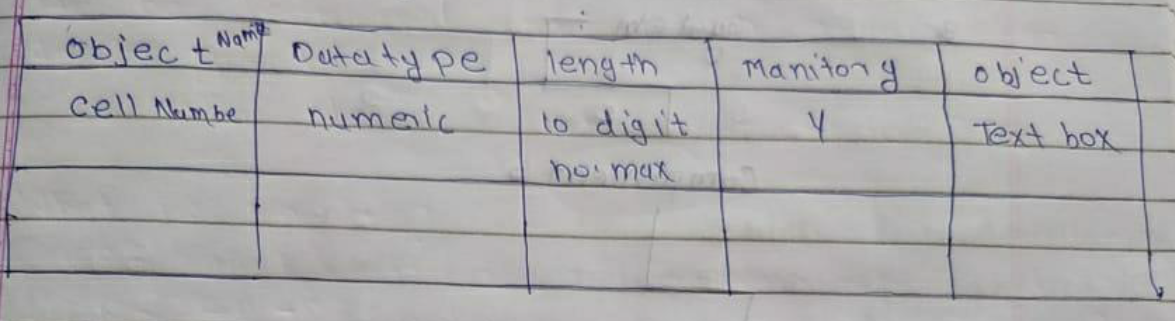 Object Name Datatype length Manitory object
Cell Numbe numeric 10 digit Y Text box
no. max